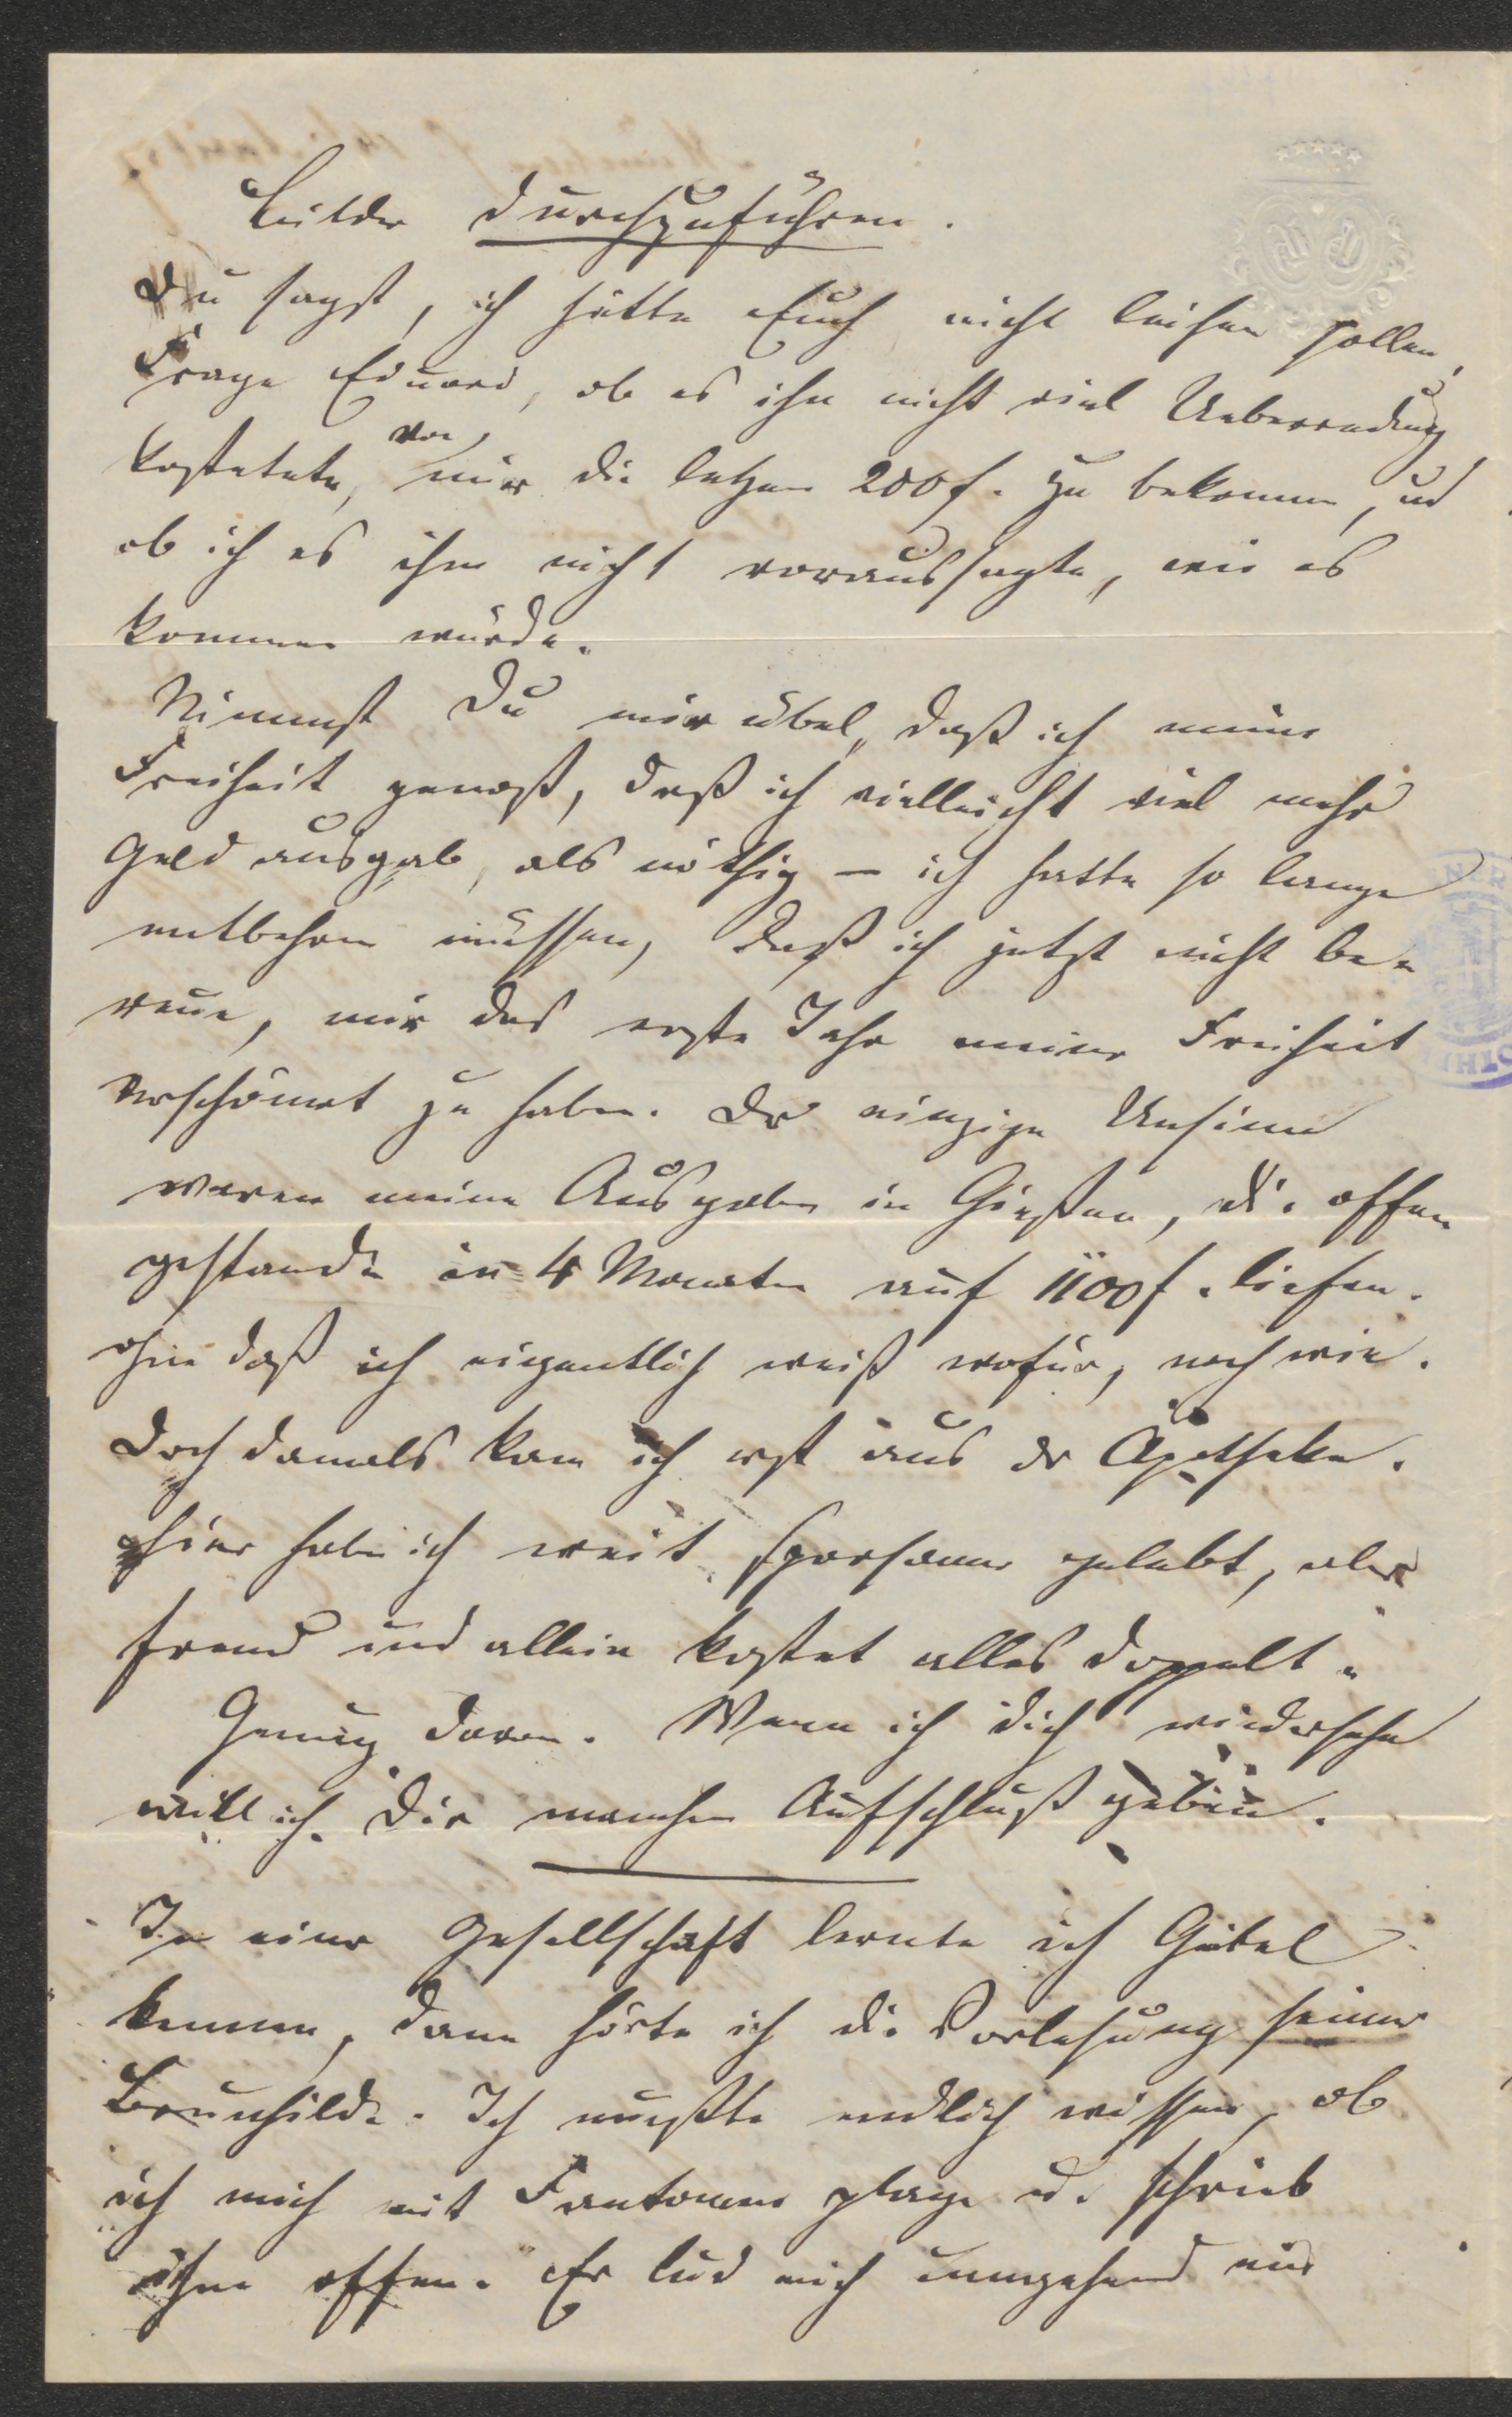 Bilder durchzuführen.
Du sagst, ich hätte Euch nicht leihen sollen,
Frage Eduard, ob es ihn nicht viel Ueberredung
kostetete, von mir die letzen 200 f. zu bekommen, und
ob ich es ihm nicht voraussagte, wie es
kommen würde.
Nimmst Du mir übel, daß ich meine
Freiheit genoß, daß ich vielleicht viel mehr
Geld ausgab, als nöthig – ich hatte so lange
entbehren müssen, daß ich jetzt nicht be-
reue, mir das erste Jahr meiner Freiheit
verschönert zu haben. Der einzige Unsinn
waren meine Ausgaben in Gießen, die offen
gestanden in 4 Monaten auf 1100 f. liefen.
ohne daß ich eigentlich weiß wofür, noch wie.
Doch damals kam ich erst aus der Apotheke.
hier habe ich weit sparsamer gelebt, aber
fremd und allein kostet alles doppelt.
Genug davon. Wenn ich Dich wiedersehe
will ich Dir manchen Aufschluß geben.
In einer Gesellschaft lernte ich Geibel
kennen, dann hörte ich die Vorlesung seiner
Brunhilde. Ich mußte endlich wissen, ob
ich mich mit Fantomen plage u. schrieb
ihm offen. Er lud mich umgehend ein